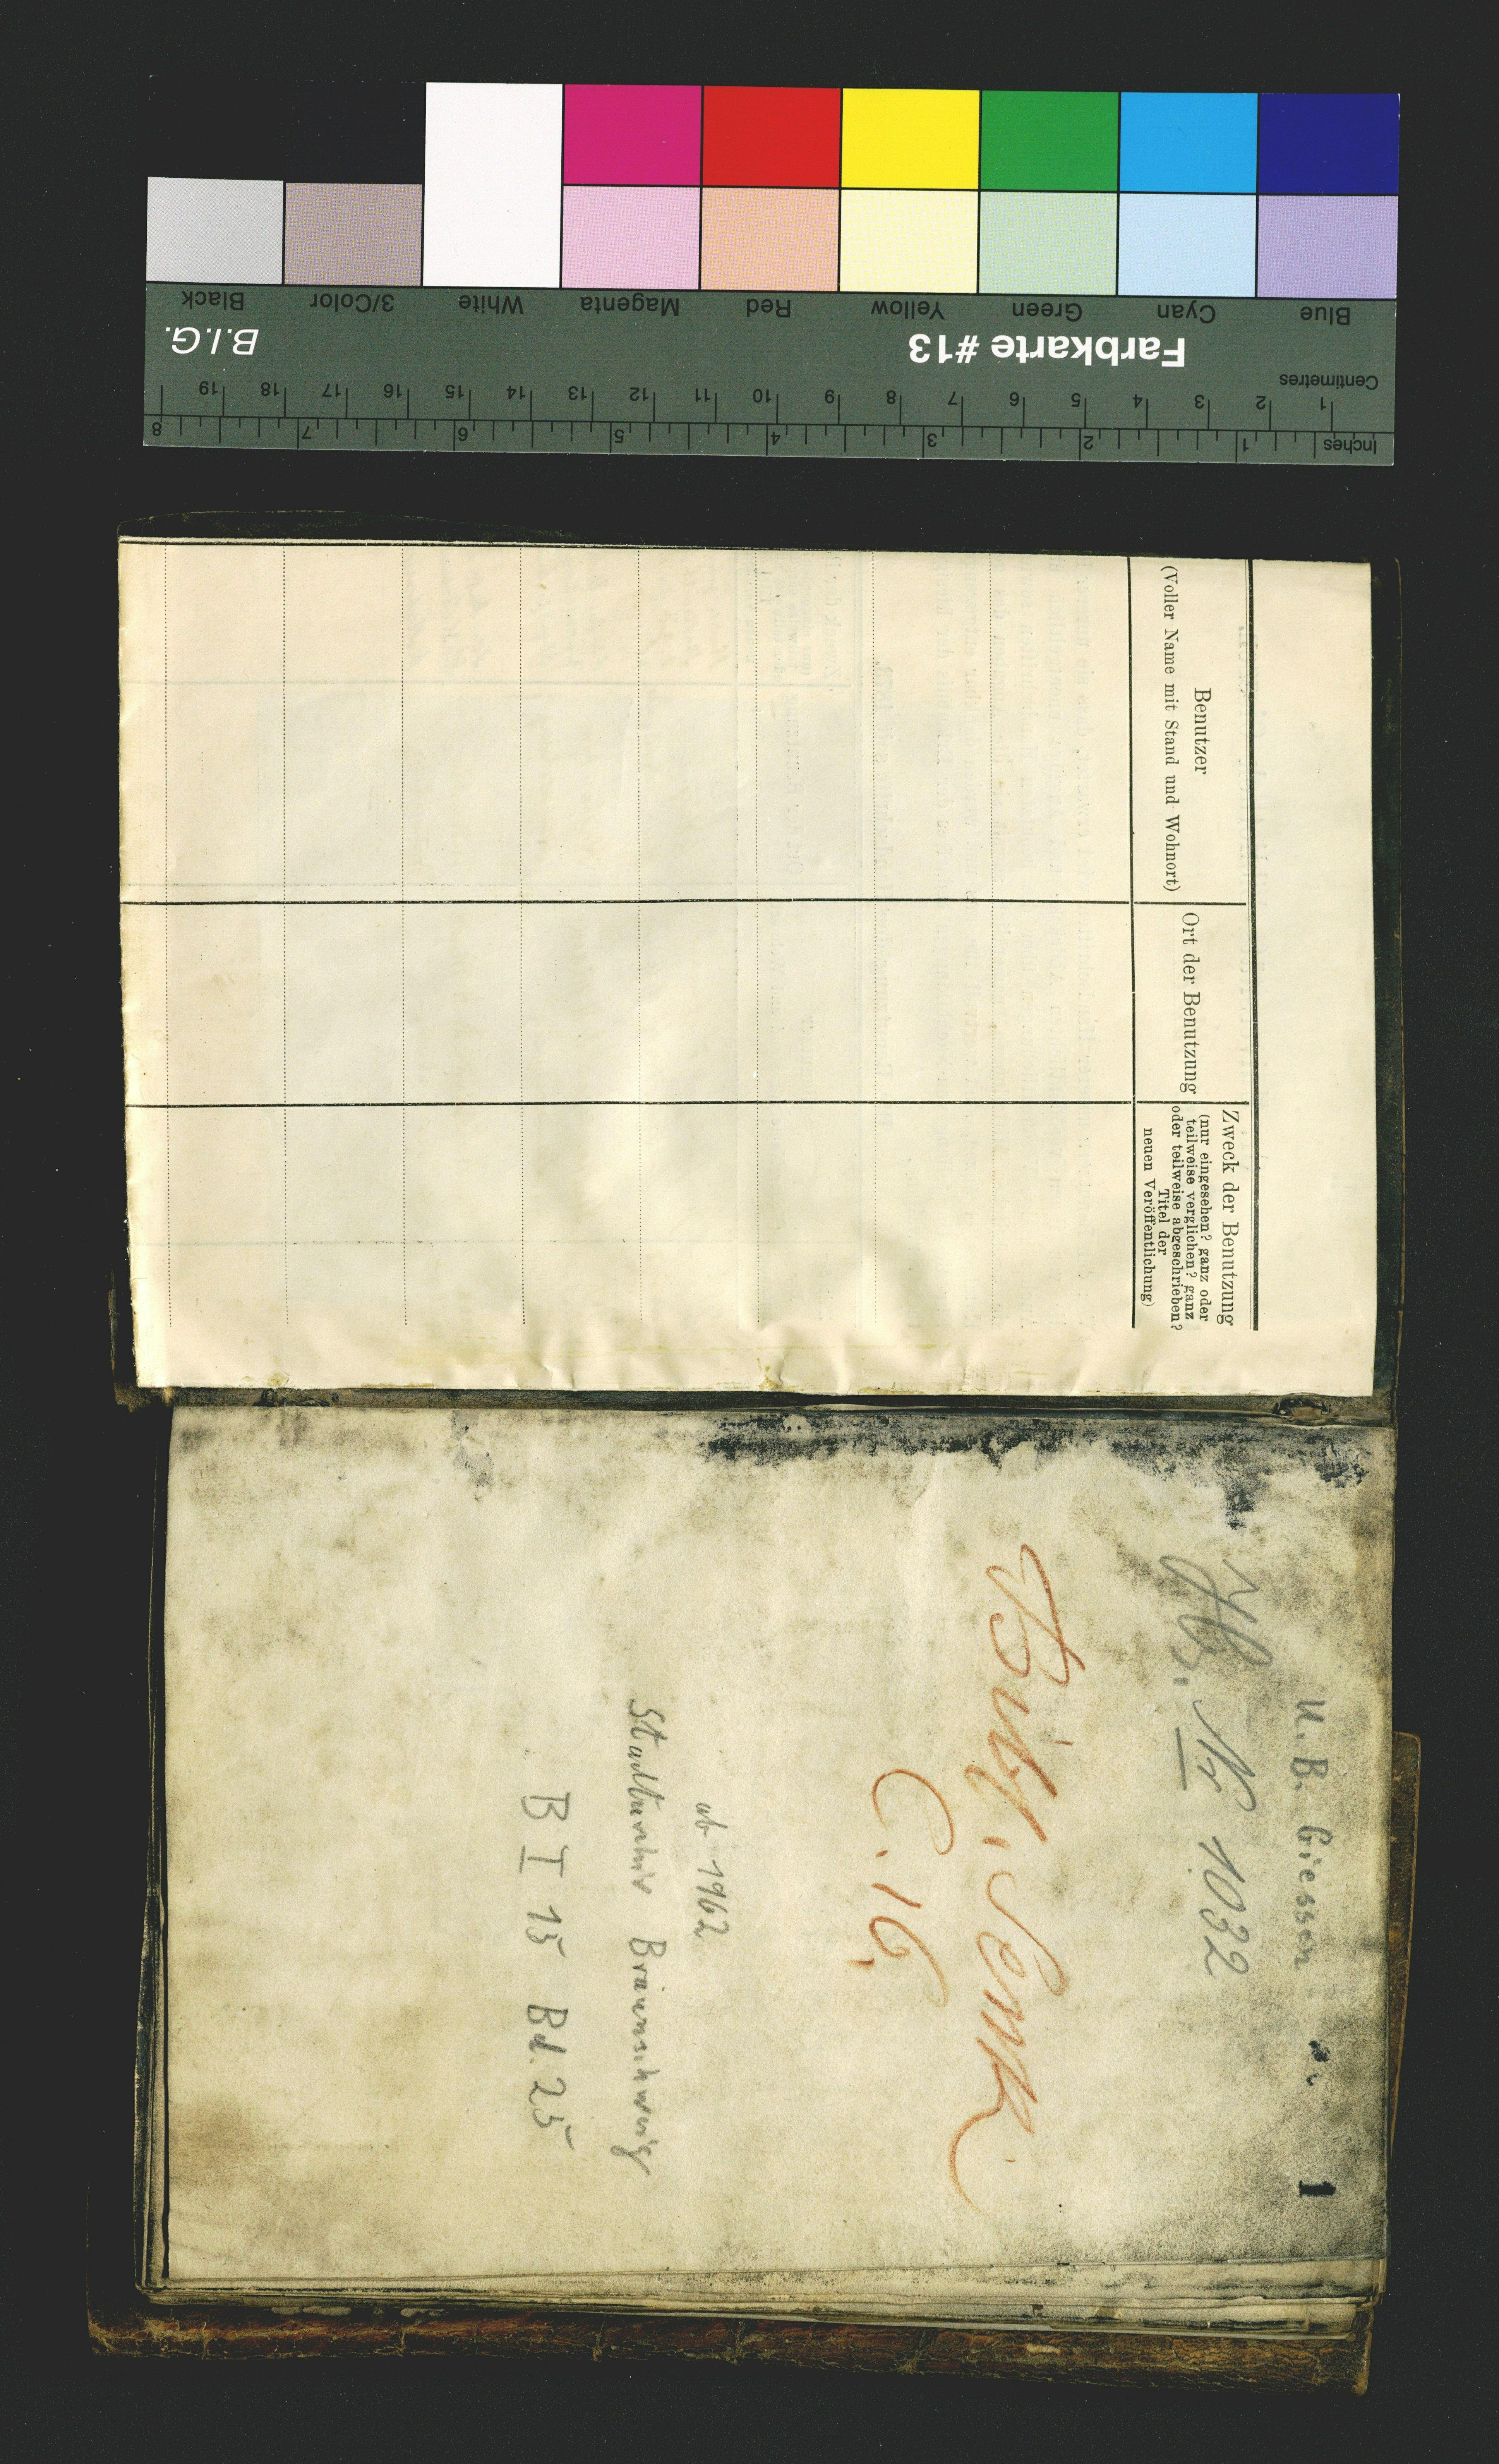 Black 3/Color White Magenta Red Yellow Green Cyan Blue
B.I.G.
Farbkarte #13
Centimetres
19 18 17 16 15 14 13 12 11 10 9 8 7 6 5 4 3 2 1
8 7 6 5 4 3 2 1
Inches
Benutzer
(Voller Name mit Stand und Wohnort)
Ort der Benutzung
Zweck der Benutzung
(nur eingesehen? ganz oder
teilweise verglichen? ganz
oder teilweise abgeschrieben?
Titel der
neuen Veröffentlichung)
U. B. Giessen
1
Hs. Nr 1032
Bibl. Senk.
C. 16
ab 1962
Stadtarchiv Braunschweig
B I 15 Bd. 25